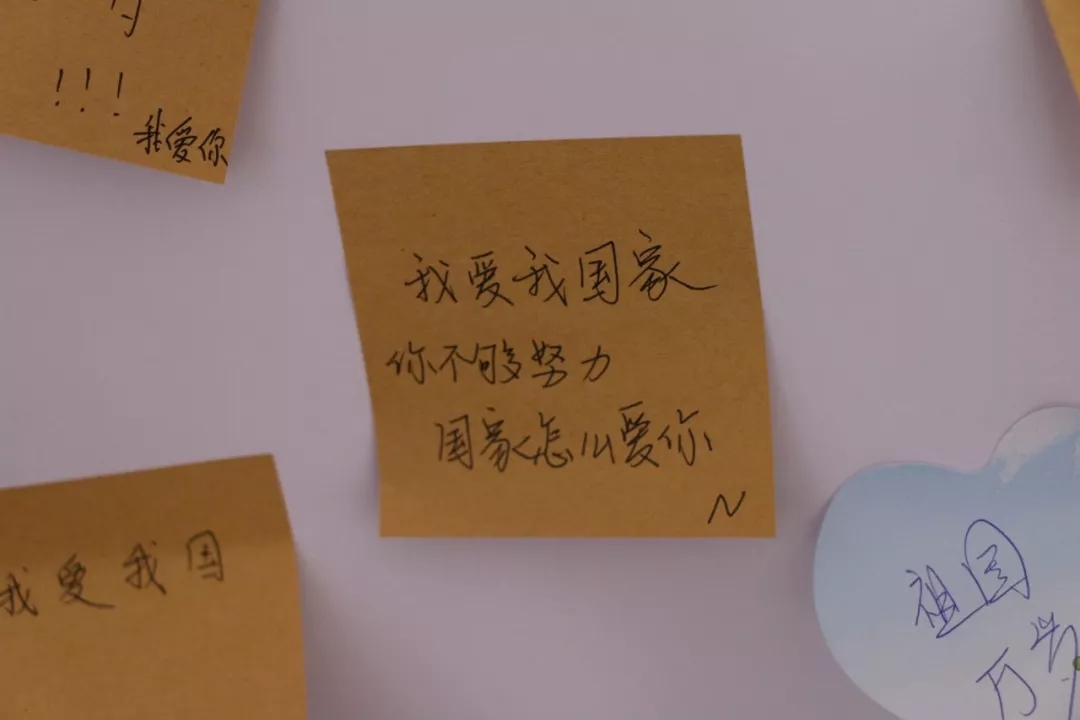 !!!
我爱你
我爱我国家
你不够努力
国家怎么爱你
N
我爱我国
祖国
万岁